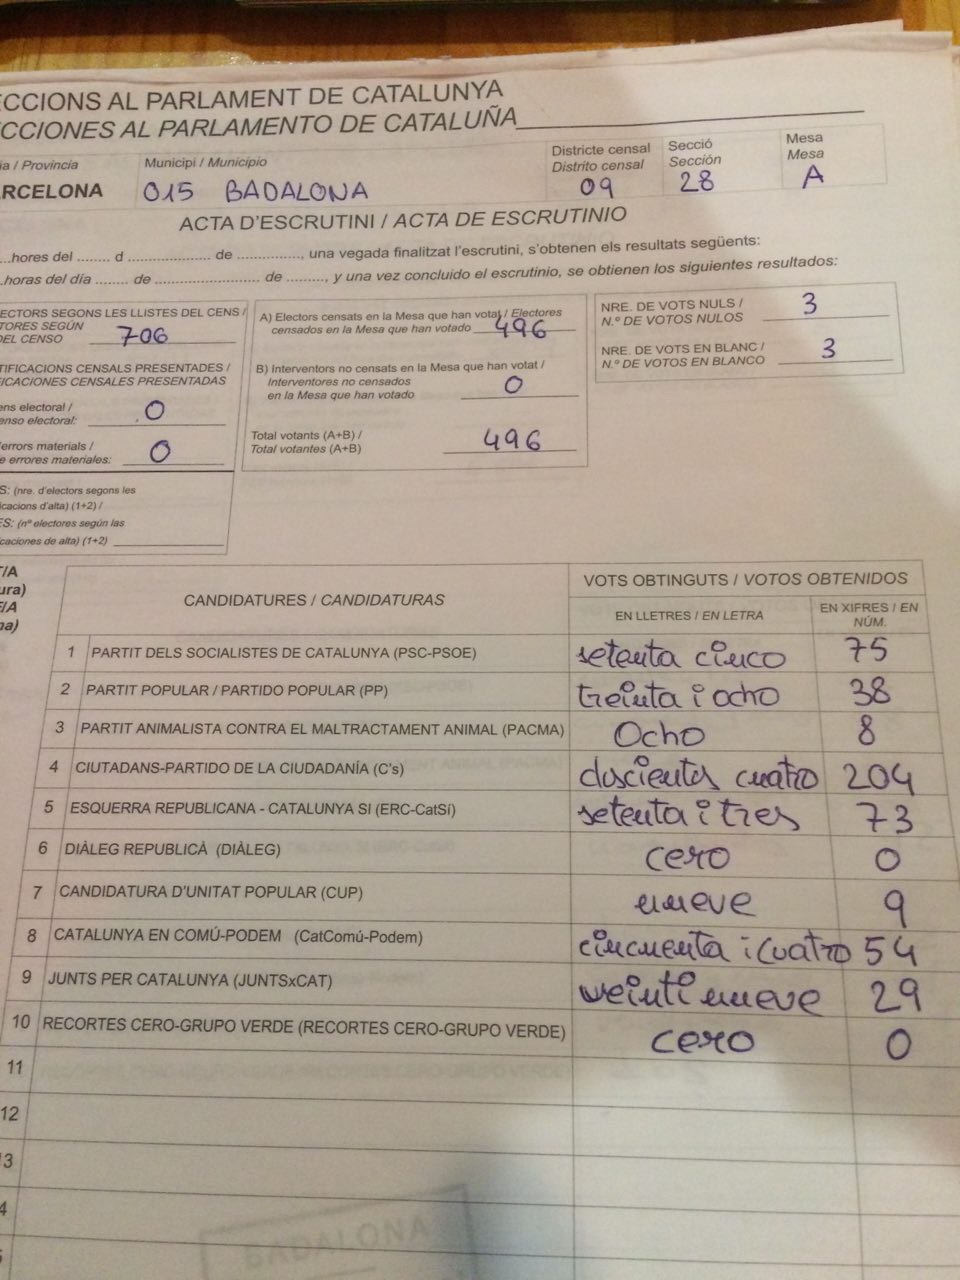 ECCIONS AL PARLAMENT DE CATALUNYA
ECCIONES AL PARLAMENTO DE CATALUÑA
ia / Provincia
RCELONA
Municipi / Municipio
015 BADALONA
Districte censal
Distrito censal
09
Secció
Sección
28
Mesa
Mesa
A
ACTA D'ESCRUTINI / ACTA DE ESCRUTINIO
...hores del ........ d .................... de ..............., una vegada finalitzat l'escrutini, s'obtenen els resultats següents:
..horas del día ........ de ......................... de ........., y una vez concluido el escrutinio, se obtienen los siguientes resultados:
ECTORS SEGONS LES LLISTES DEL CENS /
TORES SEGÚN
DEL CENSO 706
TIFICACIONS CENSALS PRESENTADES /
FICACIONES CENSALES PRESENTADAS
ens electoral /
enso electoral: 0
errors materials /
e errores materiales: 0
S: (nre. d'electors segons les
icacions d'alta) (1+2) /
ES: (nº electores según las
icaciones de alta) (1+2)
A) Electors censats en la Mesa que han votat / Electores
censados en la Mesa que han votado 496
B) Interventors no censats en la Mesa que han votat /
Interventores no censados
en la Mesa que han votado 0
Total votants (A+B) /
Total votantes (A+B) 496
NRE. DE VOTS NULS /
N.º DE VOTOS NULOS 3
NRE. DE VOTS EN BLANC /
N.º DE VOTOS EN BLANCO 3
T/A
ura)
E/A
na)
CANDIDATURES / CANDIDATURAS
VOTS OBTINGUTS / VOTOS OBTENIDOS
EN LLETRES / EN LETRA
EN XIFRES / EN
NÚM.
1 PARTIT DELS SOCIALISTES DE CATALUNYA (PSC-PSOE) setenta cinco 75
2 PARTIT POPULAR / PARTIDO POPULAR (PP) treinta i ocho 38
3 PARTIT ANIMALISTA CONTRA EL MALTRACTAMENT ANIMAL (PACMA) Ocho 8
4 CIUTADANS-PARTIDO DE LA CIUDADANÍA (C's) doscientos cuatro 204
5 ESQUERRA REPUBLICANA - CATALUNYA SI (ERC-CatSí) setenta i tres 73
6 DIÀLEG REPUBLICÀ (DIÀLEG) cero 0
7 CANDIDATURA D'UNITAT POPULAR (CUP) nueve 9
8 CATALUNYA EN COMÚ-PODEM (CatComú-Podem) cincuenta i cuatro 54
9 JUNTS PER CATALUNYA (JUNTSxCAT) veinti nueve 29
10 RECORTES CERO-GRUPO VERDE (RECORTES CERO-GRUPO VERDE) cero 0
11
12
3
4
5
BADALONA